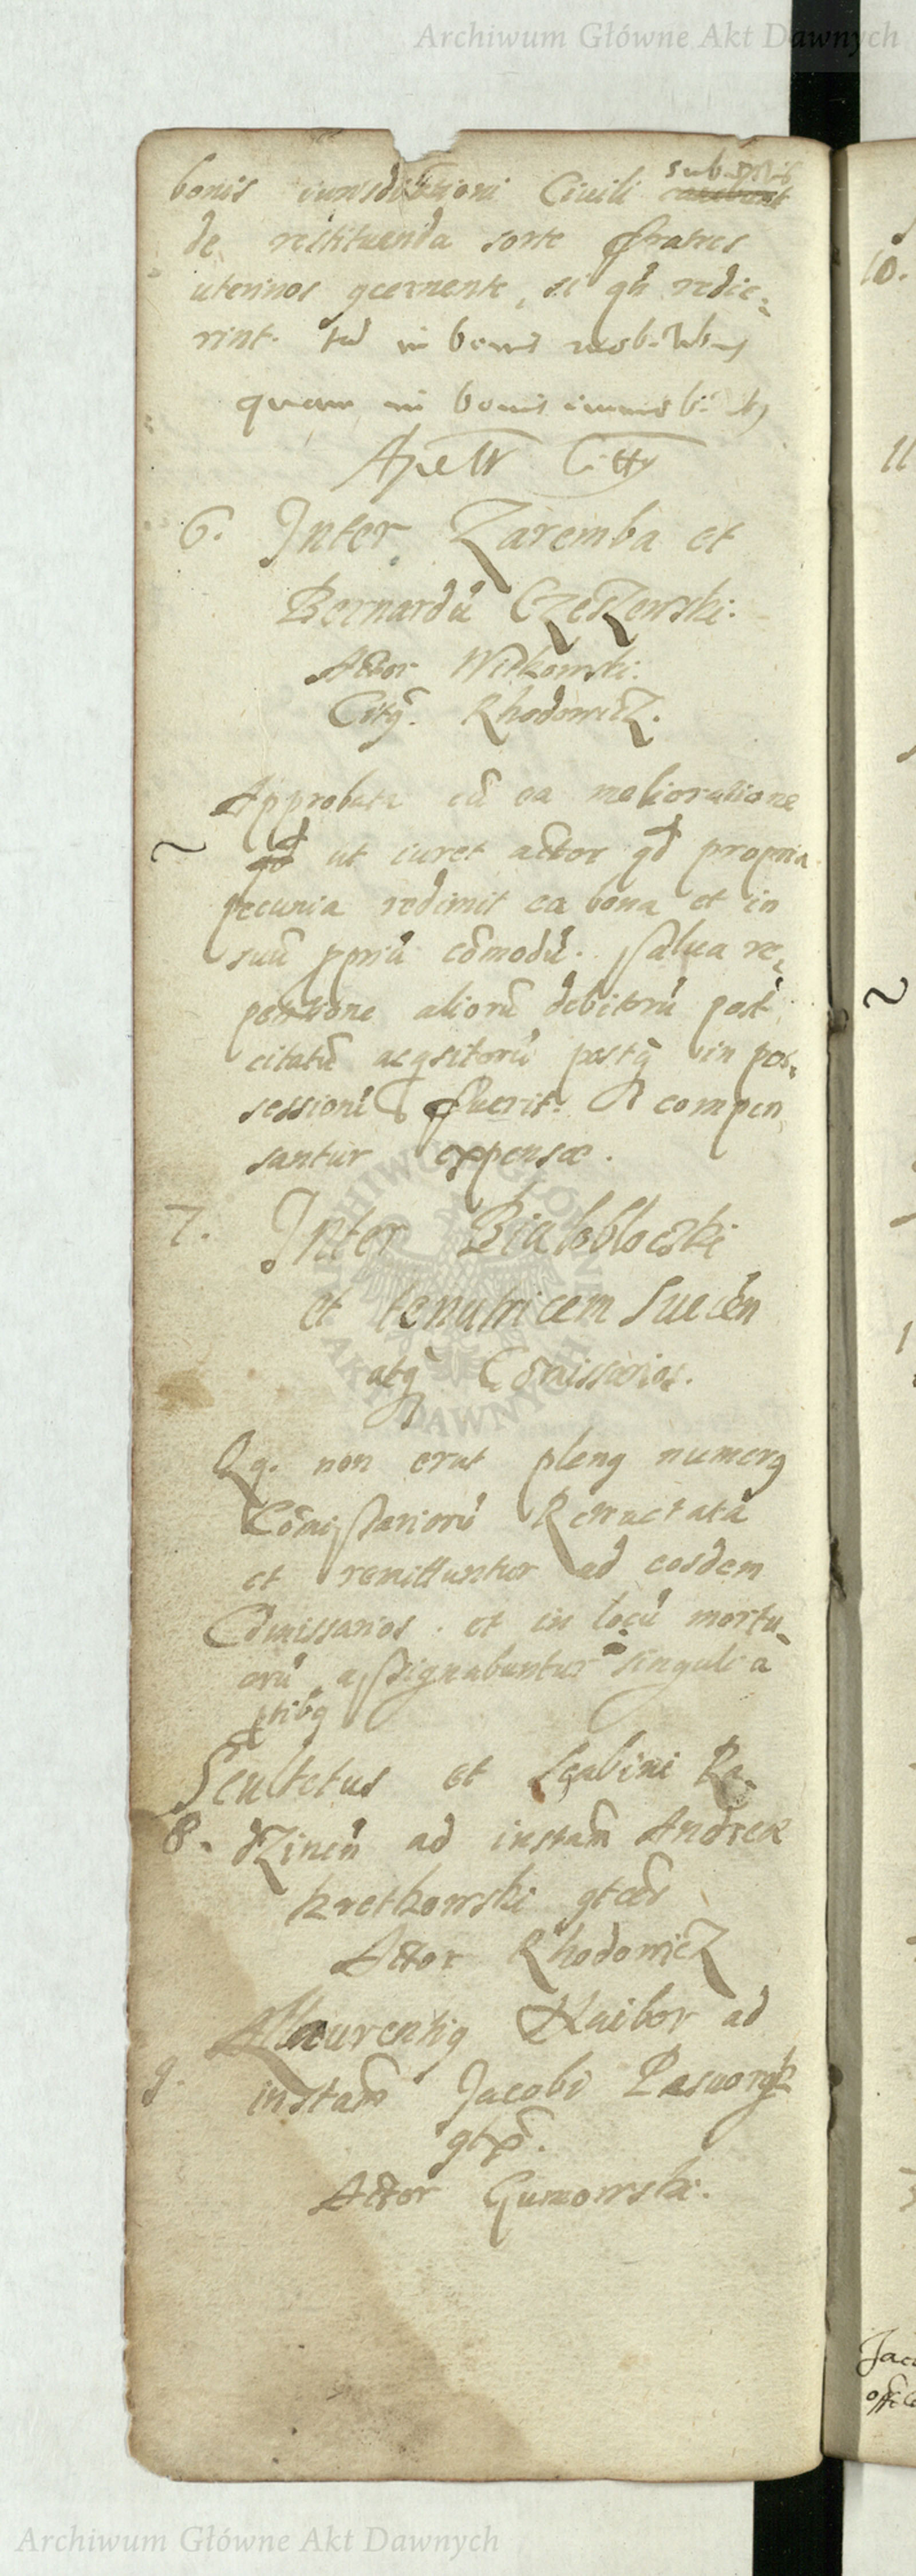 Archiwum Główne Akt Dawnych
bonis iurisdictioni Ciuili
de restituenda sorte fratres
uterinos gcernente, si qn redie
rint. in bonis
quam in bonis
Apellt Citty
6. Inter Zaremba et
Bernardū CzeszewskI.
Actor Witkowski.
Citq. Rhodowicz.
Approbata cū ea melioratione
ut iuret actor qd propria
pecunia redimit ea bona et in
suū ppriū cōmodū. Salua re
petitione aliorū debitorū post
citatū acqsitorū postq in pos
sessione fuerit. compen
santur expensæ.
7. Inter Bialobloczki
et tenutricem Suecēn
atq Cōmissarios.
Qq. non erat plenq numerq
Cōmissariorū Retractata
et remittuntur ad eosdem
Cōmissarios. et in locū mortu
orū assignabuntur singuli a
ptibq
Scultetus et Scabini Ra
8. dzineñ ad instam Andreæ
Kretkowski
Actor Rhodowicz
Laurentiq ad
9. instam Jacobi
Actor Gumowski.
10.
11
Archiwum Główne Akt Dawnych